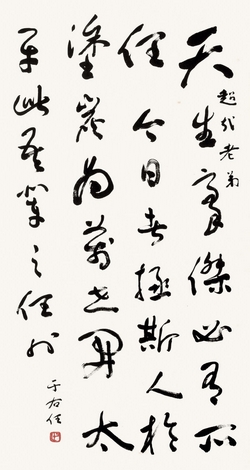 超老弟
天生豪傑必有所
任今日者拯斯人於
塗炭為萬世開太
平此吾輩之任也
于右任